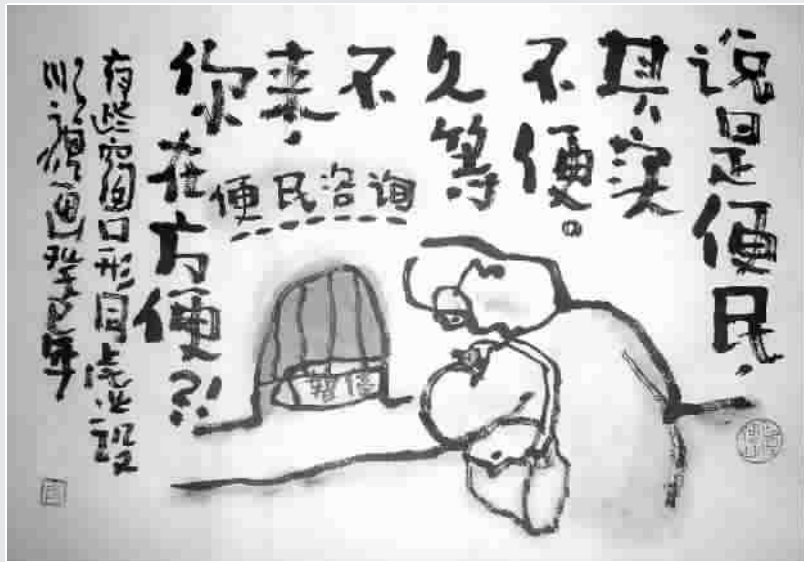 说是便民，
其实
不便。
久等
不
来，
你
在方便？！
便民咨询
暂停
有些窗口形同虚设